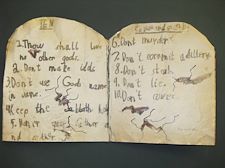 1. Thow shall
no other gods.
2. Don't make idols
3. Don't use Gods name
in vane.
4. Keep the Sabboth
5. Honer Father
nd
6. Dont murder
7. Don't commit adultery
8. Don't steal
9. Don't lie.
10. Don't covet